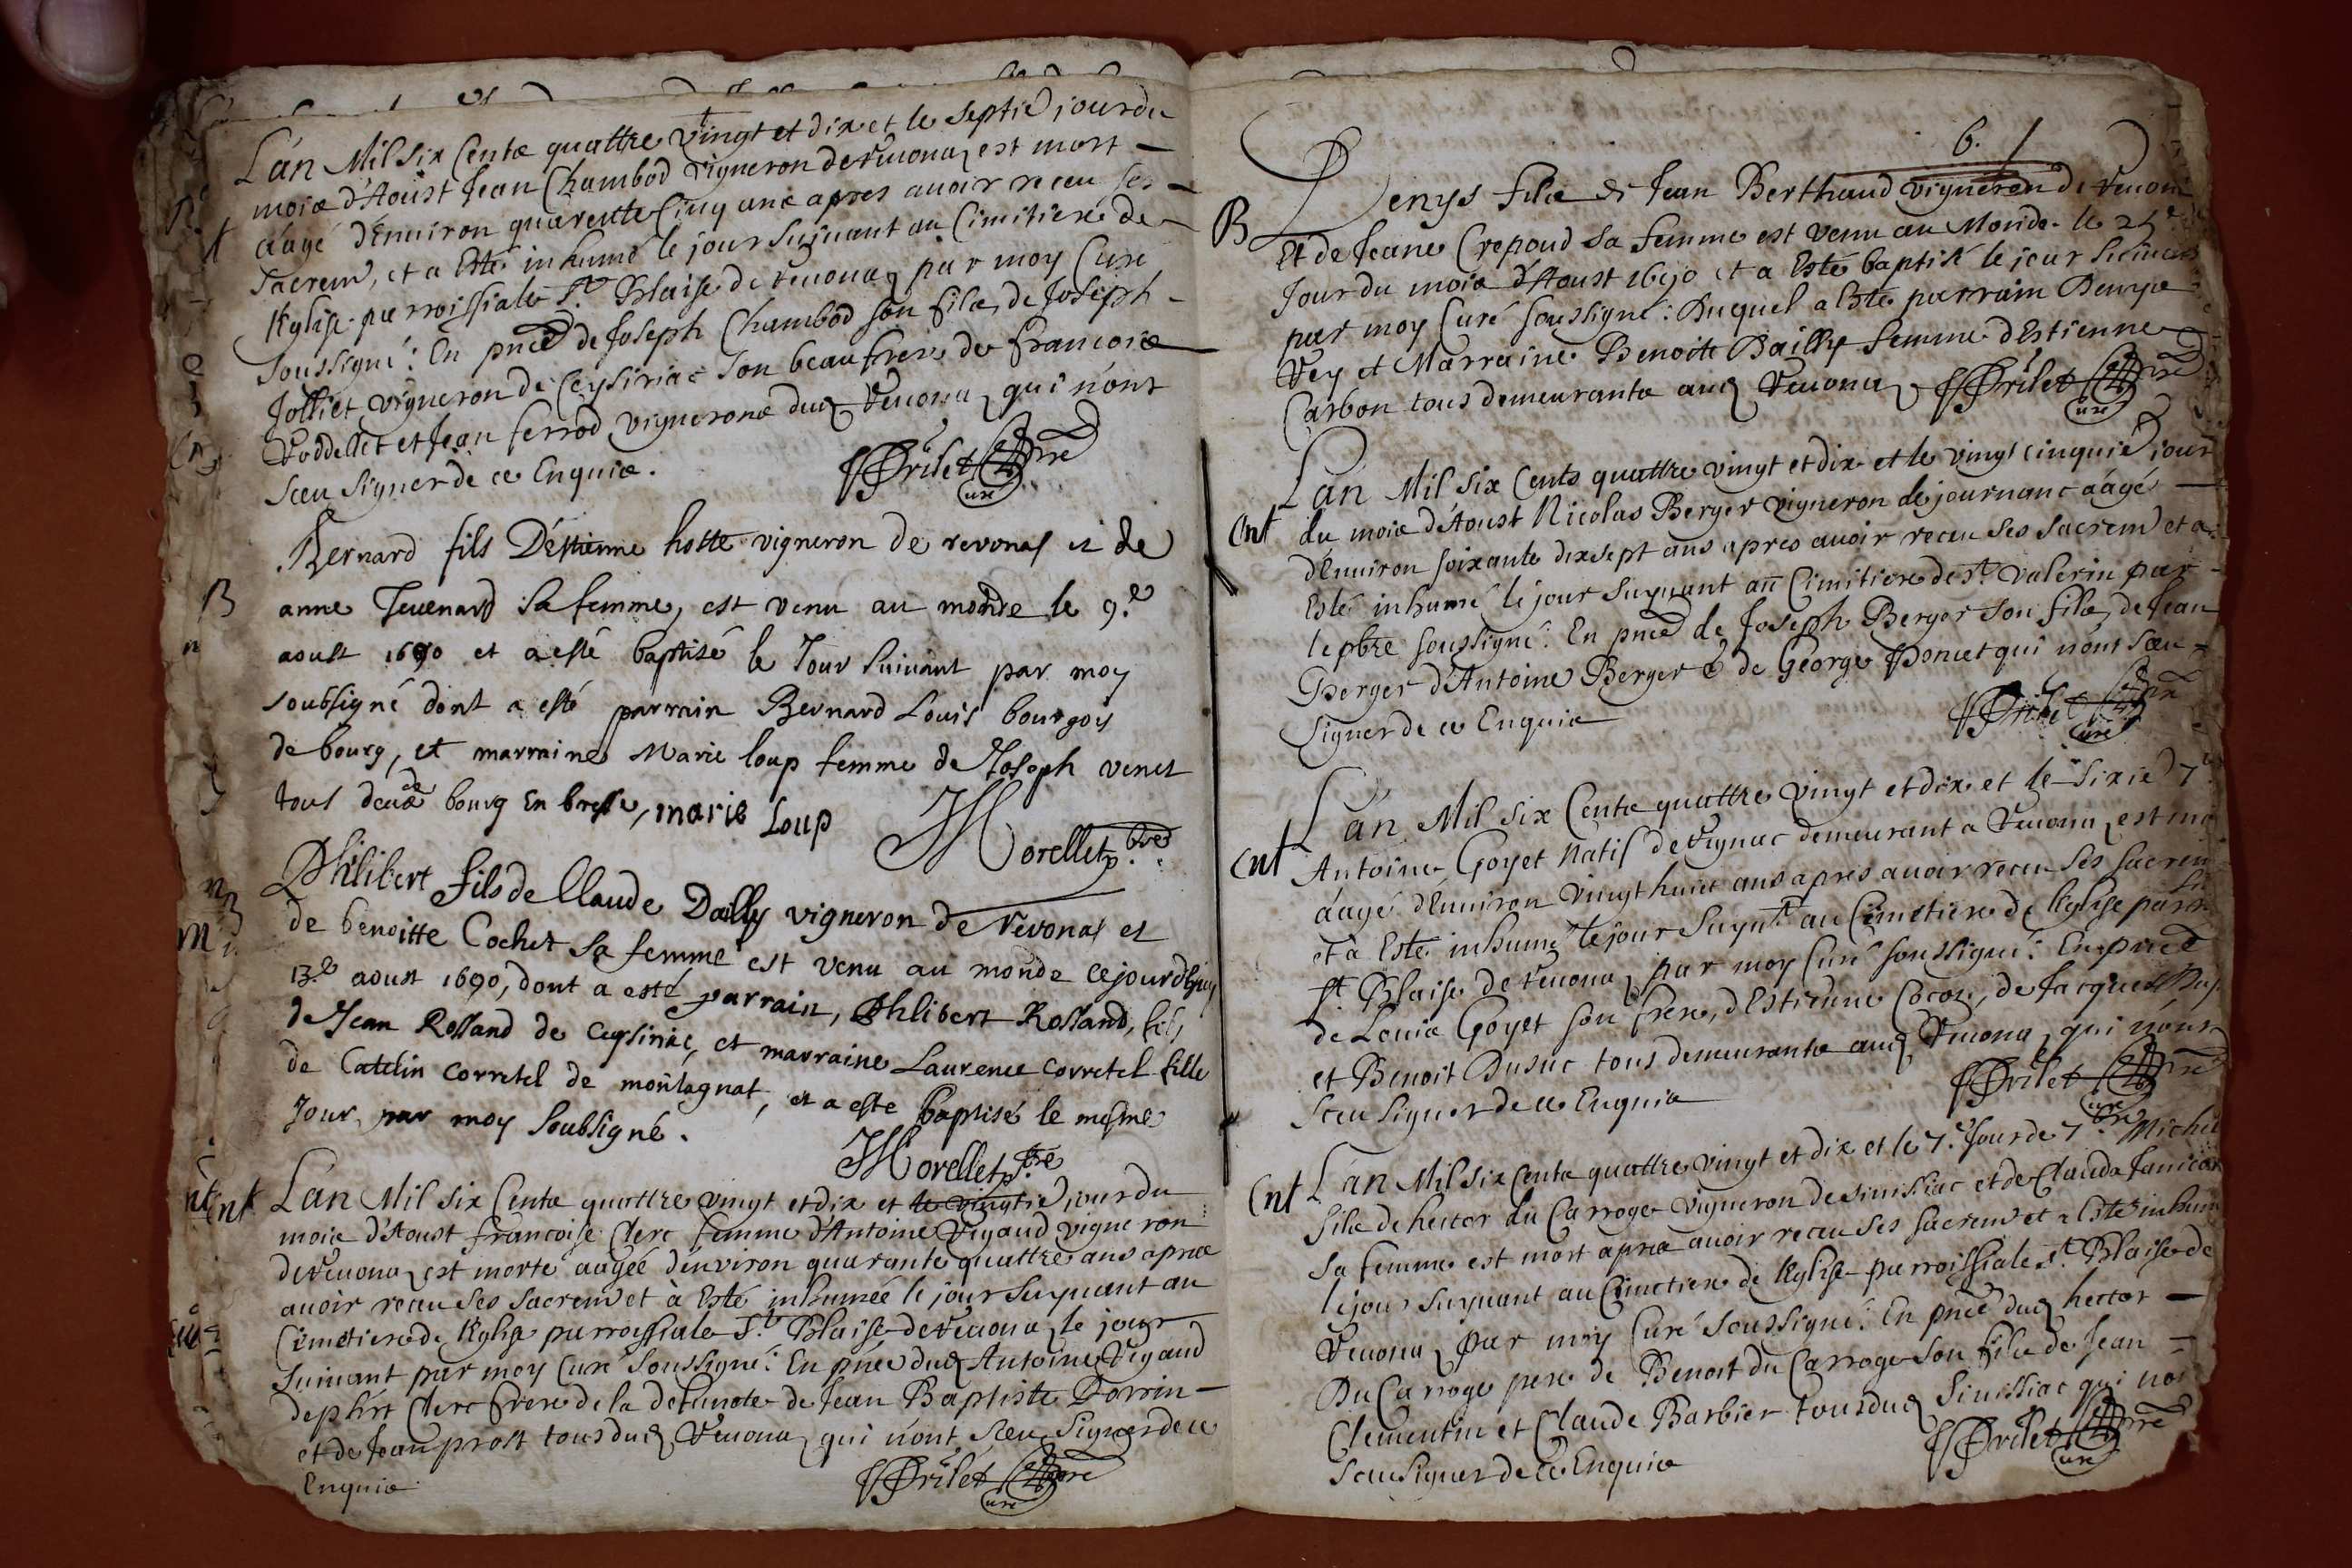 L'an Mil six Cents quattre vingt et dix et le septie jour du
mois d'Aoust Jean Chambod vigneron de Revonas est mort
aagé d'Enuiron quarente Cinq ans apres auoir receu ses
sacrem, et a Esté inhumé le jour suyuant au Cimitiere de
l'Eglise parroissiale St Blaise de revonas par moy Curé
soussigné: En pnce de Joseph Chambod son fils, de Joseph
Jolliet vigneron de Ceysiriac son beaufrere de francois
Voddellet et Jean ferrod vignerons dud Revonas qui n'ont
sceu signer de ce Enquis.
PBrilet pre
Curé
Bernard fils D'estienne hotte vigneron de revonas et de
B
anne Teuenard sa femme, est venu au monde le 9.e
aoust 1690 et a esté baptisé le Jour suiuant par moy
soubsigné dont a esté parrain Bernard Louis bourgois
de bourg, et marraine Marie loup femme de Joseph venet
tous deux de bourg En bresse, marie Loup
Morellet pbre.
Philibert fils de Claude Dailly vigneron de Revonas et
de benoitte Cochet sa femme est venu au monde cejourdhuy
13.e aoust 1690, dont a esté parrain, Philibert Rolland, fils
de Jean Rolland de Ceysiriac, et marraine Laurence Corretel fille
de Catelin Corretel de montagnat, et a esté baptisé le mesme
Jour, par moy soubsigné.
Morellet pbre.
Ent
L'an Mil six Cents quattre vingt et dix et le vingtie jour du
mois d'Aoust francoise Clerc femme d'Antoine Vigaud vigneron
de Revonas est morte aagée d'enuiron quarante quattre ans apres
auoir receu ses sacrem et à Esté inhumée le jour suyuant au
Cimetiere de l'Eglise parroissiale St Blaise de Revonas le jour
suiuant par moy Curé soussigné: En pnce dud Antoine Vigaud
de phirt Clerc frere de la defuncte de Jean Baptiste Dorrin
et de Jean prost tous dud Revonas qui n'ont sceu signer de ce
Enquis
PBrilet pre
Curé
6.
Denys fils de Jean Berthaud vigneron de Revonas
B
Et de Jeane Crepoud sa femme est venu au Monde le 25e
Jour du mois d'Aoust 1690 et a Esté baptisé le jour suiuant
par moy Curé soussigné: Duquel a Esté parrain Denys
Vey et Marraine Benoite Bailly femme d'Estienne
Carbon tous demeurants aud Revonas
PBrilet pre
Curé
L'an Mil six Cents quattre vingt et dix et le vingt cinquie jour
Ent
du mois d'Aoust Nicolas Berger vigneron de journanc aagé
d'Enuiron soixante dix sept ans apres auoir receu ses sacrem et a
Esté inhumé le jour suyuant au Cimitiere de St Valerin par
le pbre soussigné: En pnce de Joseph Berger son fils, de Jean
Berger d'Antoine Berger & de George Poncet qui n'ont sceu
signer de ce Enquis
PBrilet pre
Curé
L'an Mil six Cents quattre vingt et dix et le sixie 7
Ent
Antoine Goyet Natif de demeurant a Revonas est
aagé d'Enuiron vingt huict ans apres auoir receu ses sacrem
et à Esté inhumé le jour suyut au Cimetiere de l'Eglise
St Blaise de revonas par moy Curé soussigné: En pnce
de Louis Goyet son frere, d'Estienne Cocon, de Jacques
et Benoit Dusuc tous demeurants aud Revonas qui n'ont
sceu signer de ce Enquis
PBrilet pre
Curé
Ent
L'an Mil six Cents quattre vingt et dix et le 7.e Jour de 7bre Michel
fils de hector du Carroge vigneron de Simissiac et de Clauda
sa femme est mort apres auoir receu ses sacrem et a Esté inhumé
le jour suyuant au Cimetiere de l'Eglise parroissiale St Blaise de
Revonas par moy Curé soussigné: En pnce dud hector
Du Carroge pere de Benoit du Carroge son fils de Jean
Clementin et Claude Barbier tous dud Simissiac qui
sceu signer de ce Enquis
PBrilet pre
Curé